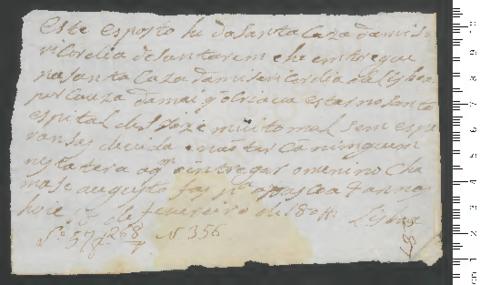 este esposto he da Santa Caza da mise
ricordia de santarem e he entregue
na santa Caza da misericordia de lisboa
por cauza da mai q o criava estar no santo
espital de s Joze muito mal sem espe
ransas de vida e não ter ca ninguem
nesta tera a qm entregar o menino Cha
mase augusto fas pa a pascoa 7 annos
hoie 13 de fevereiro de 1804 Lisboa
N 356